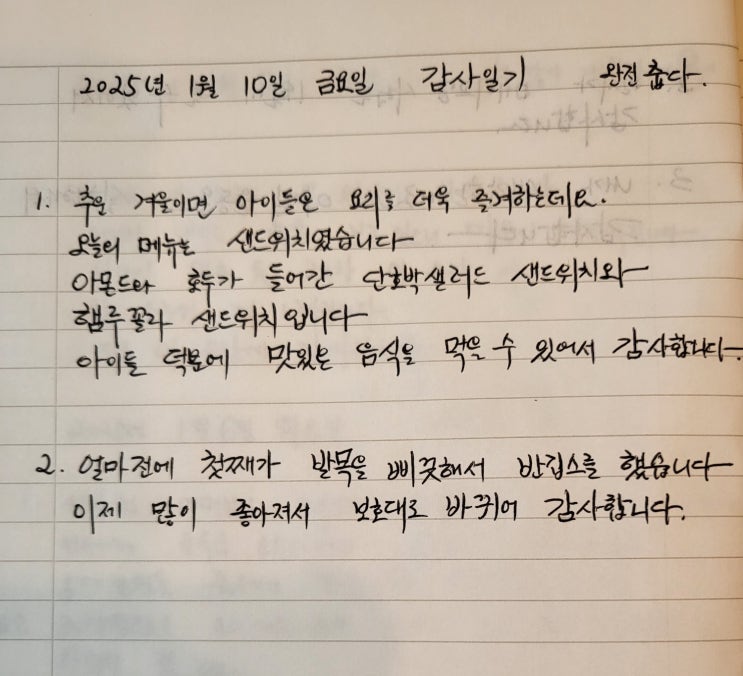 2025년 1월 10일 금요일 감사일기 완전 춥다.
1. 추운 겨울이면 아이들은 요리를 더욱 즐겨하는데요.
오늘의 메뉴는 샌드위치였습니다
아몬드와 호두가 들어간 단호박샐러드 샌드위치와
햄루꼴라 샌드위치입니다
아이들 덕분에 맛있는 음식을 먹을 수 있어서 감사합니다.
2. 얼마전에 첫째가 발목을 삐끗해서 반깁스를 했습니다
이제 많이 좋아져서 보호대로 바뀌어 감사합니다.